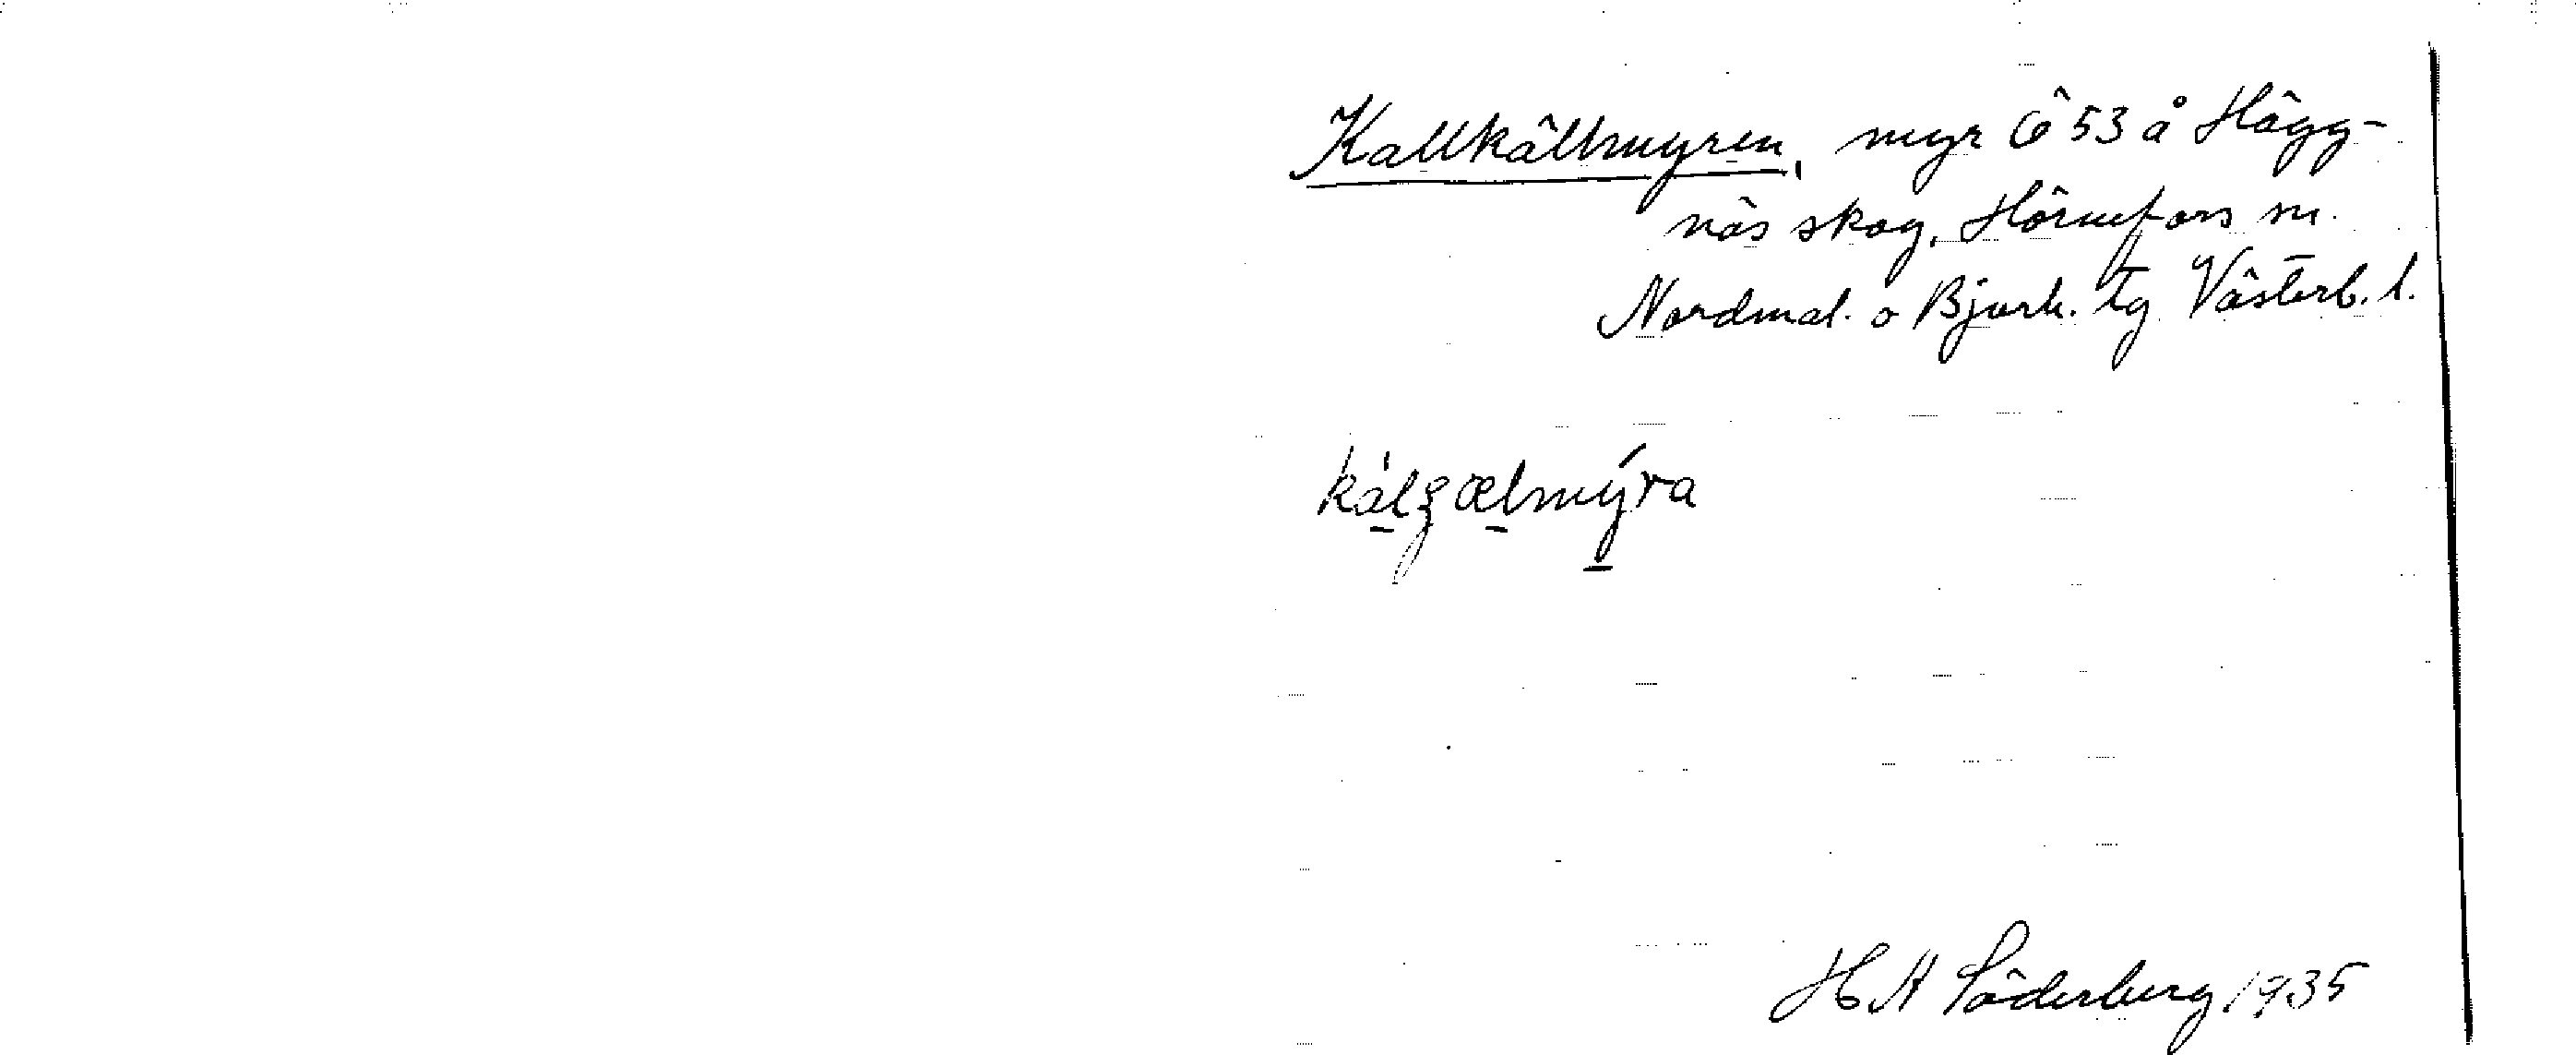 Kallkällmyren, myr Ö 53 å Hägg-
näs skog, Hörnefors sn.
Nordmal. o Bjurh. tg Västerb. l.
H A Söderberg 1935